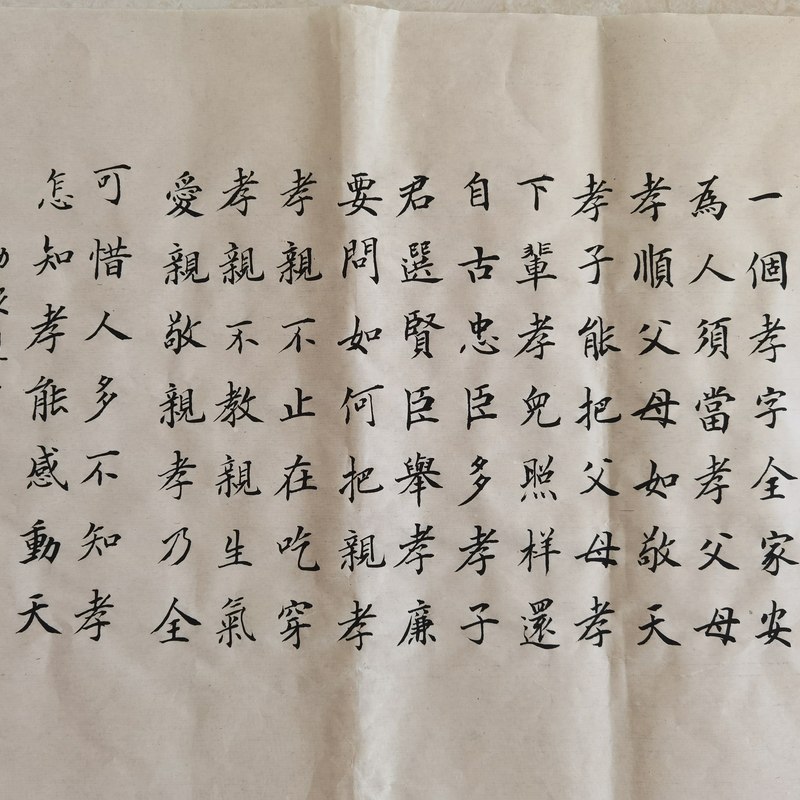 一個孝字全家安
為人須當孝父母
孝順父母如敬天
孝子能把父母孝
下輩孝兒照樣還
自古忠臣多孝子
君選賢臣舉孝廉
要問如何把親孝
孝親不止在吃穿
孝親不教親生氣
愛親敬親孝乃全
可惜人多不知孝
怎知孝能感動天